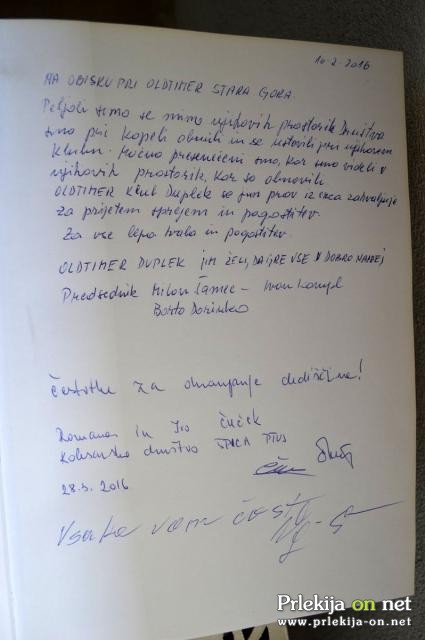 10.2.2016
NA OBISKU PRI OLDTIMER STARA GORA.
Peljali smo se mimo njihovih prostorih Društva
smo pri kapeli obrnili in se ustavili pri njihovem
klubu. Močno presenečeni smo, kar smo videli v
njihovih prostorih, kar so obnovili.
OLDTIMER Klub Duplek se jim prav iz srca zahvaljuje
za prijeten sprejem in pogostitev.
Za vse lepa hvala in pogostitev.
OLDTIMER DUPLEK JIM ŽELI, DA GRE VSE V DOBRO NAPREJ
Predsednik Milan – Ivan
čestitke za ohranjanje dediščine!
Romana in Ivo Čuček
Kolesarsko društvo PTUJ
28.3.2016
Vsaka vam čast
Prlekija on net
www.prlekija-on.net